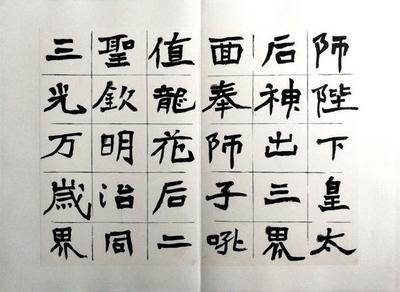 师陛下皇太
后神出三界
面奉师子吼
值龍花后二
聖欽明治同
三光万歲界